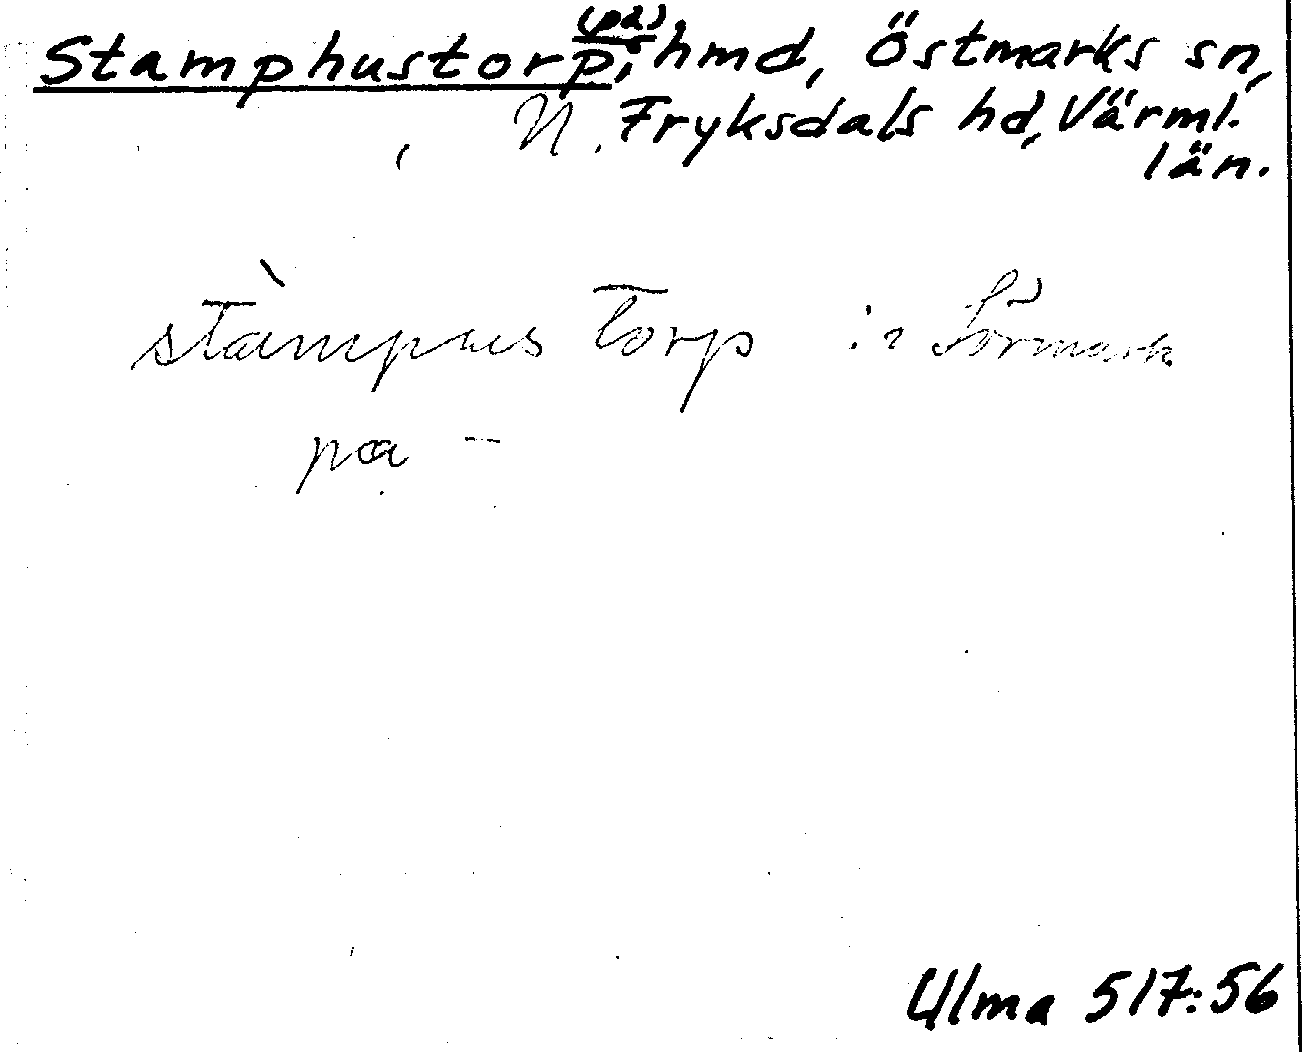 Stamphustorp, (på) hmd, Östmarks sn,
N. Fryksdals hd, Värml.
län.
stàmpus torp : i Sörmark
pa —
Ulma 517:56